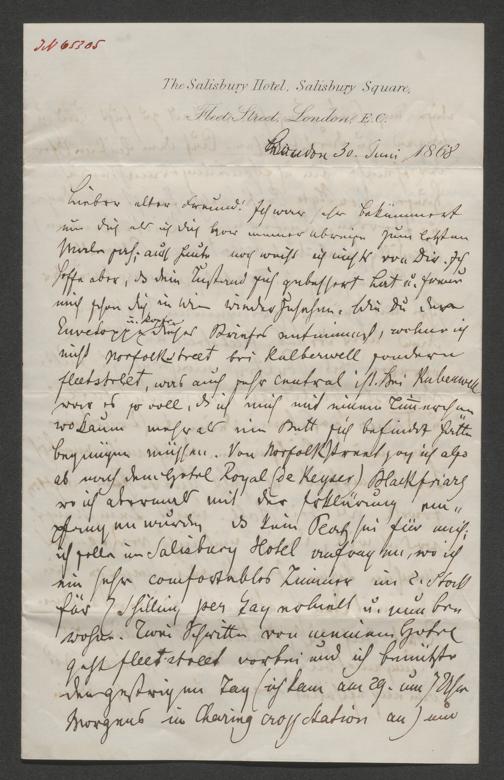 JN 65305
The Salisbury Hotel, Salisbury Square,
Fleet Street, London, E.C.
London 30. Juni 1868
Lieber alter Freund! Ich war sehr bekümmert
um dich als ich dich vor meiner Abreise zum letzten
Male sah; auch heute noch weiß ich nichts von Dir. Ich
hoffe aber, dß dein Zustand sich gebessert hat u. freue
mich schon dich in Wien wieder zu sehen. Wie Du dem
Enveloppe u. Kopfe dieses Briefes entnimmst, wohne ich
nicht Norfolkstreet bei Kalberwell sondern
Fleetstreet, was auch sehr central ist. Bei Kuberwell
war es so voll, dß ich mich mit einem Zimmerchen
wo kaum mehr als ein Bett sich befindet hätte
begnügen müssen. Von Norfolkstreet zog ich also
ab nach dem Hotel Royal (de Keyser) Blackfriars
wo ich abermals mit der Erklärung em-
pfangen wurde, dß kein Platz sei für mich;
ich solle im Salisbury Hotel anfragen, wo ich
ein sehr comfortables Zimmer im 2. Stock
für 7 Shilling per Tag erhielt u. nun be
wohne. Zwei Schritte von meinem Hotel
geht Fleetstreet vorbei und ich benützte
den gestrigen Tag (ich kam am 29. um 7 Uhr
Morgens in Charing cross station an) um